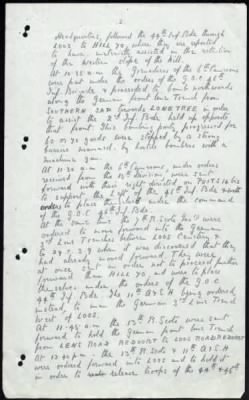 2.
Headquarters, followed the 44th Inf Bde through
LOOS to HILL 70, where they are reported
to have materially assisted in the retention
of the western slope of the hill.
At 10.35 a.m. the Grenadiers of the 6th Camerons
were put under the orders of the G.O.C 45th
Inf Brigade & proceeded to bomb northwards
along the German front line Trench from
SOUTHERN SAP towards LONE TREE in order
to assist the 2nd Inf Bde held up opposite
that front. This bombing party progressed for
60 or 70 yards were stopped by a strong
barrier manned by hostile bombers with a
machine gun.
At 11.30 a.m. the 6th Camerons, under orders
received from the 15th Division, were sent
forward with their right directed on PUITS 14 bis
to support the left of the 44th Inf Bde
orders to place themselves under the command
of the G.O.C 44th Inf Bde.
At the same time the 7th R. Scots Fus were
ordered to move forward into the German
2nd Line Trenches between LOOS Cemetery &
when it was discovered that they
had already moved forward. They were
at once sent an order not to proceed further
forward than HILL 70, and were to place
themselves under the orders of the G.O.C.
44th Inf Bde. The 11th A & S H being ordered,
instead, to man the German 2nd Line Trench
West of LOOS.
At 11.45 a.m. the 13th R. Scots were sent
forward to hold the German front line Trench
from LENS ROAD REDOUBT to LOOS ROAD REDOUBT
At 12.40 p.m. the 13th R. Scots & 11th A & S H
were ordered forward into LOOS and to hold it
in order to render release troops of the 44th & 46th